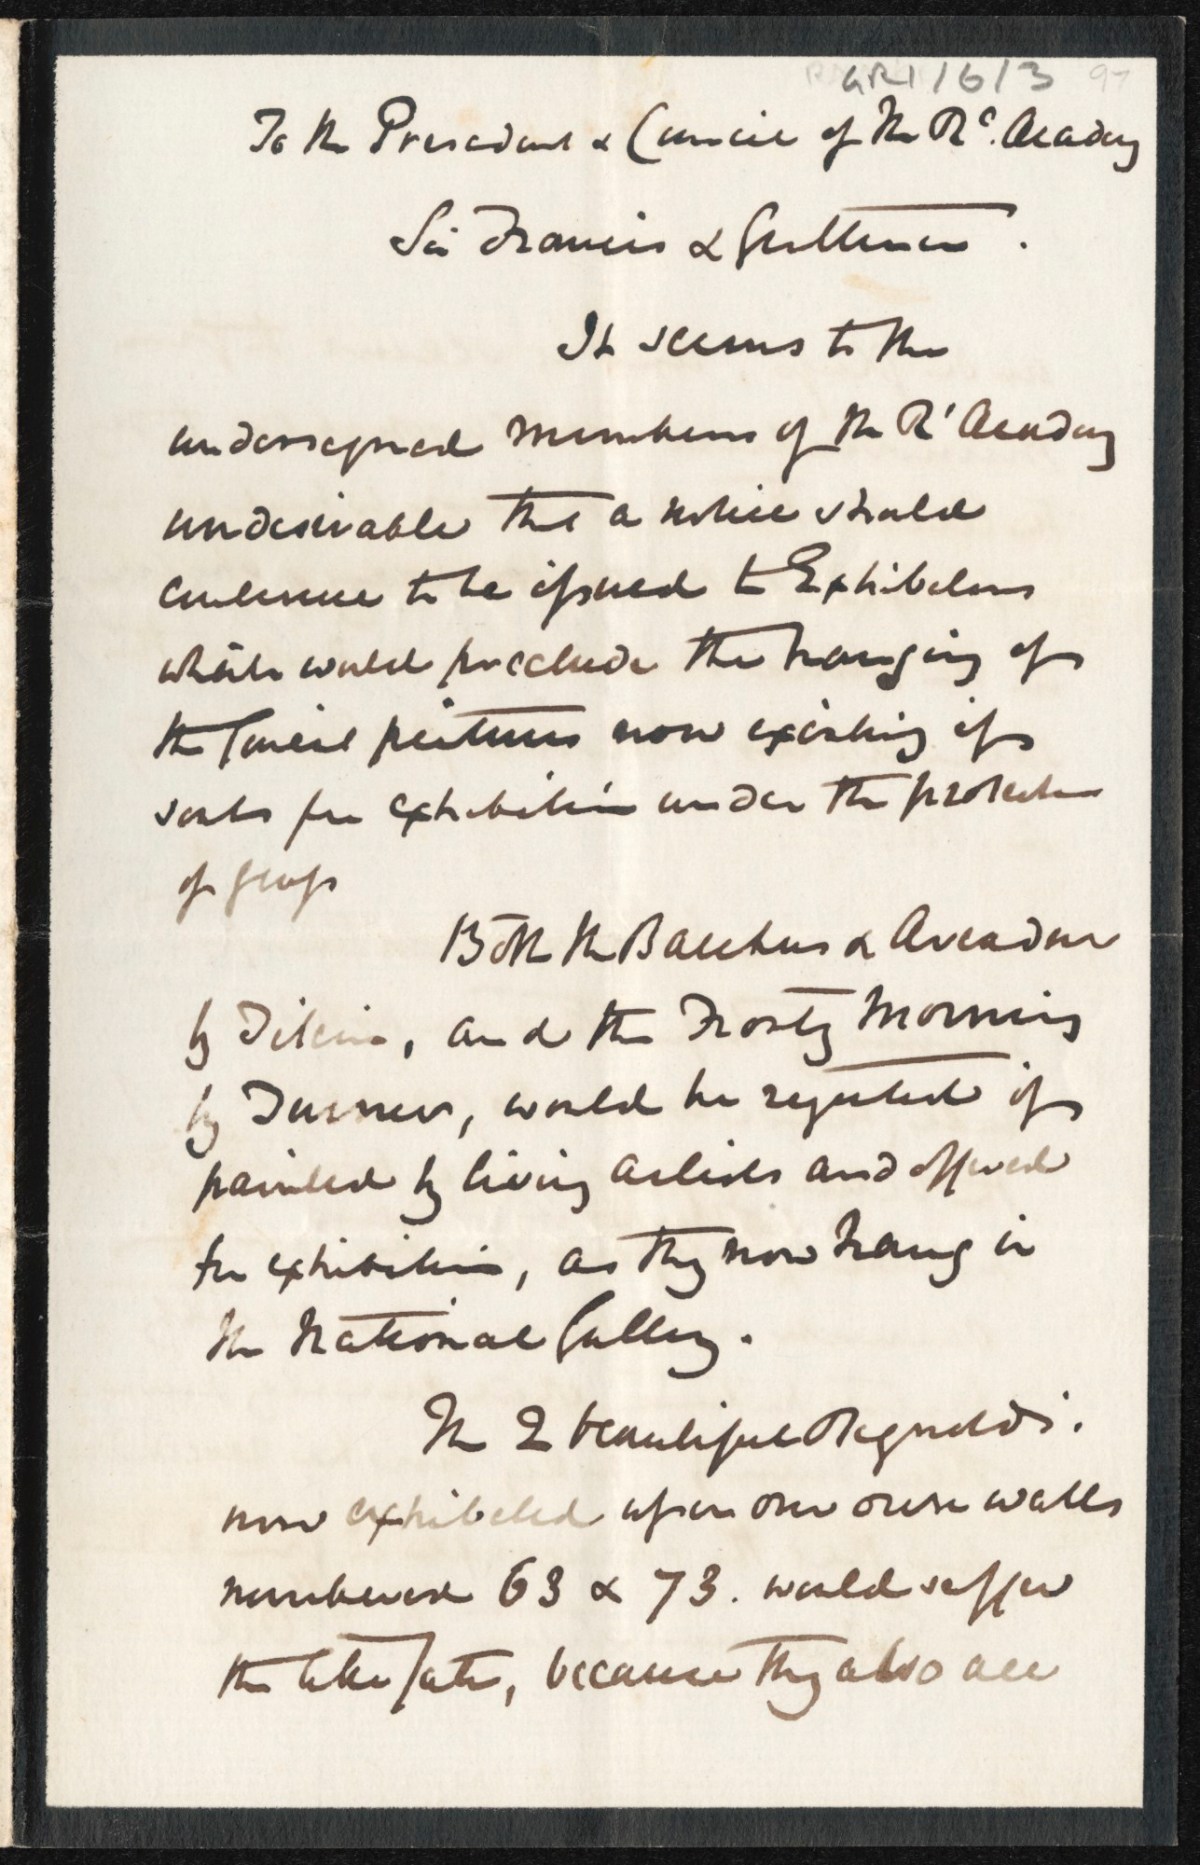 GRI/6/3 97
To the President & Council of the Rl. Academy
Sir Francis & Gentlemen.
It seems to the
undersigned members of the Rl Academy
undesirable that a notice should
continue to be issued to Exhibitors
which would preclude the hanging of
the finest pictures now existing if
sent for exhibition under the protection
of glass
Both the Bacchus & Ariadne
by Titian, and the Frosty Morning
by Turner, would be rejected if
painted by living artists and offered
for exhibition, as they now hang in
the National Gallery.
The 2 beautiful Reynolds's.
now exhibited upon our own walls
numbered 63 & 73. would suffer
the like fate, because they also are